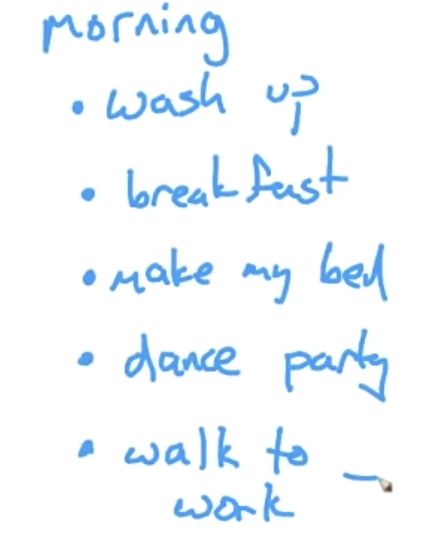 morning
• wash up
• breakfast
• make my bed
• dance party
• walk to
work